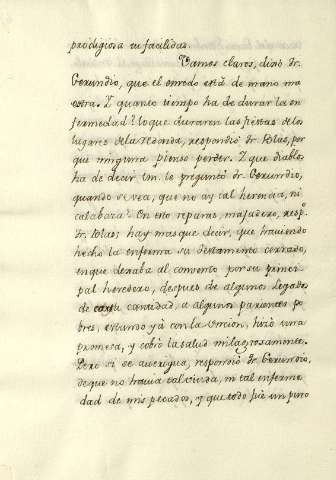 prodigiosa tu facilidad.
Vamos claros, dixo fr.
Gerundio, que el enredo está de mano ma
estra. Y quanto tiempo ha de durar la en
fermedad? lo que duraren las fiestas de los
lugares de la redonda, respondió fr. Blas, por
que ninguna pienso perder. Y que diablos
ha de decir Vm. le preguntó fr. Gerundio,
quando se vea, que no ay tal herencia, ni
calabaza? En esto reparas, majadero, resp.
fr. Blas; hay mas que decir, que haviendo
hecho la enferma su testamento cerrado,
en que dexaba al convento por su princi
pal heredero, despues de algunos legados
de cantidad a algunos parientes po
bres, estando yá con la Uncion, hizo una
promesa, y cobró la salud milagrosamente.
Pero si se averigua, respondió fr. Gerundio,
de que no havia tal viuda, ni tal enferme
dad de mis pecados, y que todo fue un puro